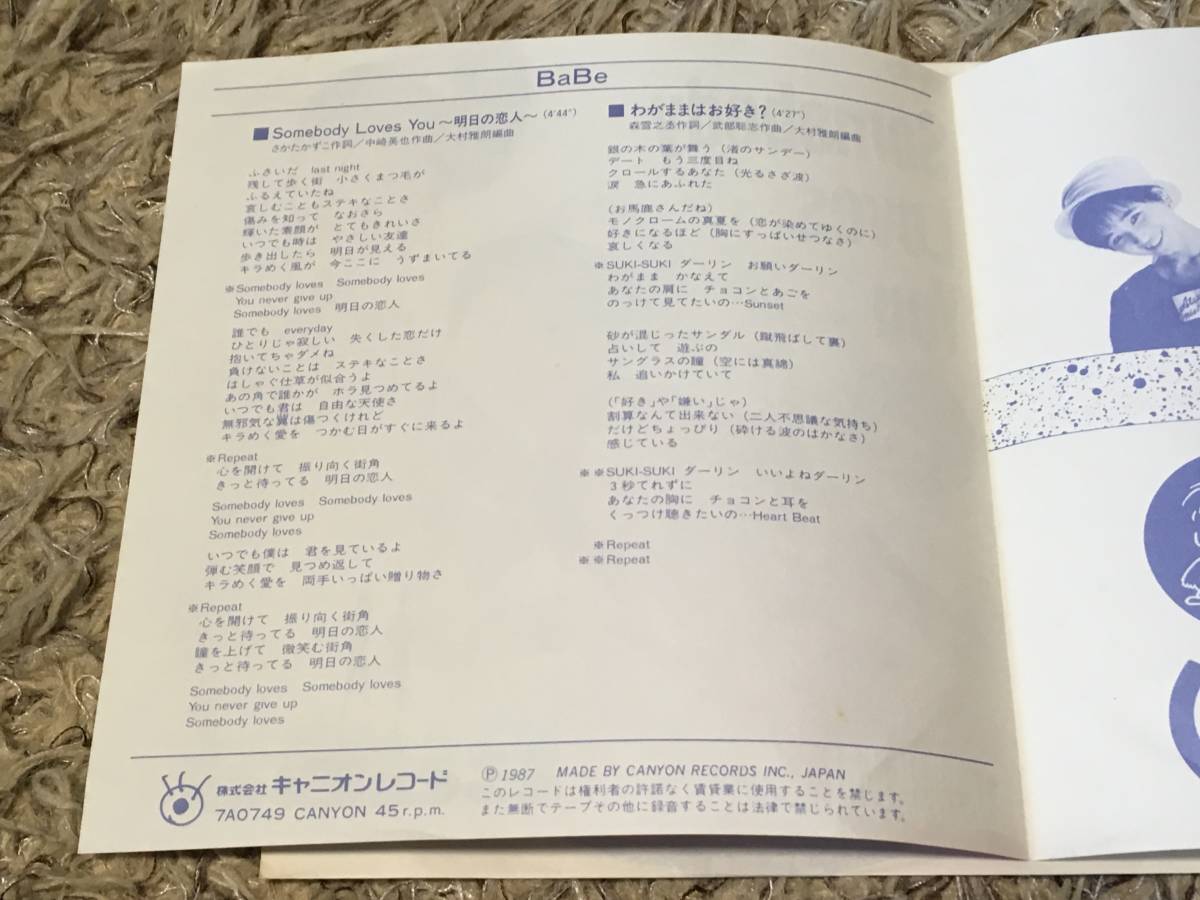 BaBe
■ Somebody Loves You ～明日の恋人～ (4'44")
さかたかずこ作詞／中崎英也作曲／大村雅朗編曲
ふさいだ last night
残して歩く街 小さくまつ毛が
ふるえていたね
哀しむこともステキなことさ
傷みを知って なおさら
輝いた素顔が とてもきれいさ
いつでも時は やさしい友達
歩き出したら 明日が見える
キラめく風が 今ここに うずまいてる
※Somebody loves Somebody loves
You never give up
Somebody loves 明日の恋人
誰でも everyday
ひとりじゃ寂しい 失くした恋だけ
抱いてちゃダメね
負けないことは ステキなことさ
はしゃぐ仕草が似合うよ
あの角で誰かが ホラ見つめてるよ
いつでも君は 自由な天使さ
無邪気な翼は傷つくけれど
キラめく愛を つかむ日がすぐに来るよ
※Repeat
心を開けて 振り向く街角
きっと待ってる 明日の恋人
Somebody loves Somebody loves
You never give up
Somebody loves
いつでも僕は 君を見ているよ
弾む笑顔で 見つめ返して
キラめく愛を 両手いっぱい贈り物さ
※Repeat
心を開けて 振り向く街角
きっと待ってる 明日の恋人
瞳を上げて 微笑む街角
きっと待ってる 明日の恋人
Somebody loves Somebody loves
You never give up
Somebody loves
■ わがままはお好き? (4'27")
森雪之丞作詞／武部聡志作曲／大村雅朗編曲
銀の木の葉が舞う（渚のサンデー）
デート もう三度目ね
クロールするあなた（光るさざ波）
涙 急にあふれた
（お馬鹿さんだね）
モノクロームの真夏を（恋が染めてゆくのに）
好きになるほど（胸にすっぱいせつなさ）
哀しくなる
※SUKI-SUKI ダーリン お願いダーリン
わがまま かなえて
あなたの肩に チョコンとあごを
のっけて見てたいの…Sunset
砂が混じったサンダル（蹴飛ばして裏）
占いして 遊ぶの
サングラスの瞳（空には真綿）
私 追いかけていて
（「好き」や「嫌い」じゃ）
割算なんて出来ない（二人不思議な気持ち）
だけどちょっぴり（砕ける波のはかなさ）
感じている
※※SUKI-SUKI ダーリン いいよねダーリン
3秒てれずに
あなたの胸に チョコンと耳を
くっつけ聴きたいの…Heart Beat
※Repeat
※※Repeat
株式会社 キャニオンレコード
7A0749 CANYON 45 r.p.m.
Ⓟ 1987 MADE BY CANYON RECORDS INC., JAPAN
このレコードは権利者の許諾なく賃貸業に使用することを禁じます。
また無断でテープその他に録音することは法律で禁じられています。